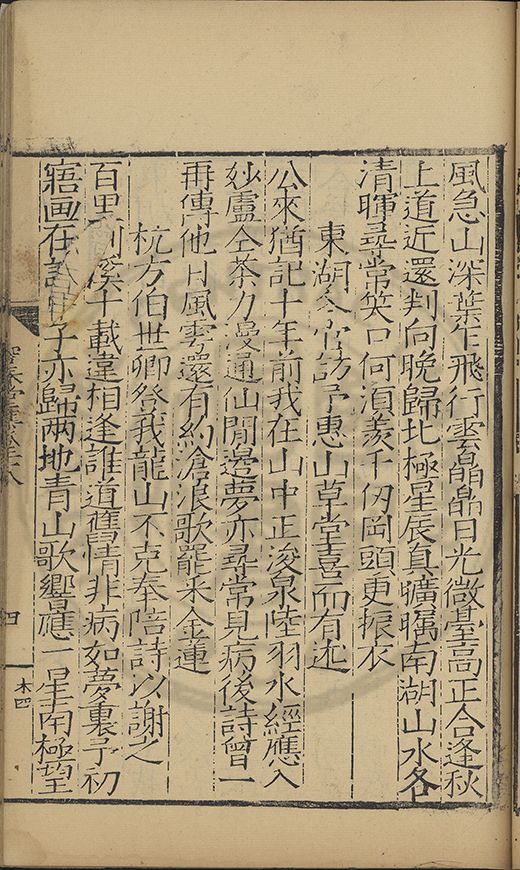 風急山深葉乍飛行雲皛皛日光微臺高正合逢秋
上道近還判向晚歸北極星辰真曠矚南湖山水各
清暉尋常笑口何須羡千仞岡頭更振衣
東湖令官訪予惠山草堂喜而有述
公來猶記十年前我在山中正浚泉陸羽水經應入
妙盧仝茶力漫通仙閒邊夢亦尋常見病後詩曾一
再傳他日風雲還有約滄浪歌罷采金蓮
杭方伯世卿登我龍山不克奉陪詩以謝之
百里剡溪十載違相逢誰道舊情非病如夢裏予初
寤画在訣中子亦歸兩地青山歌響應一星南極望
四
木四